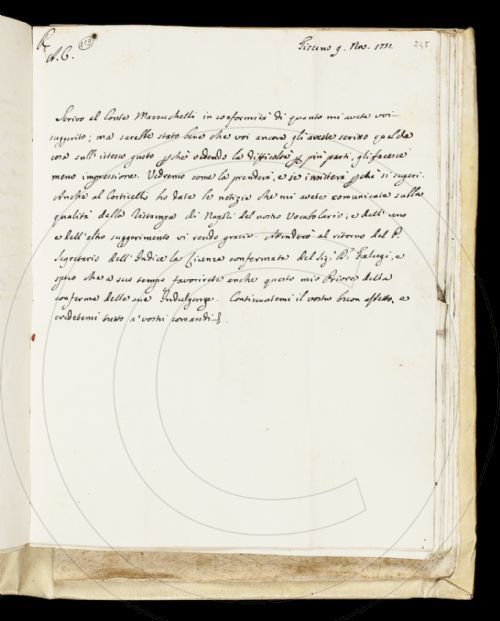 A. C.
213
9. Nov. 1751.
245
Scrivo al Conte Mazzuchelli in conformità di quanto mi avete voi
suggerito; ma sarebbe stato bene che voi ancora gli aveste scritto qualche
cosa sull' istesso gusto udendo la difficoltà più parti, gli facesse
meno impressione. Vedremo come la prenderà, e se si superi.
Anche al Corticelli ho date le notizie che mi avete comunicate sulla
qualità della Ristampa di Napoli del nostro Vocabolario; e dell' uno
e dell' altro suggerimento vi rendo grazie. Attenderò al ritorno del P.
Segretario dell' Indice la Licenza confermata del Sig. e
spero che a suo tempo favorirete anche questo mio Priore della
conferma delle sue Indulgenze. Continuatemi il vostro buon affetto, e
credetemi tutto a' vostri comandi